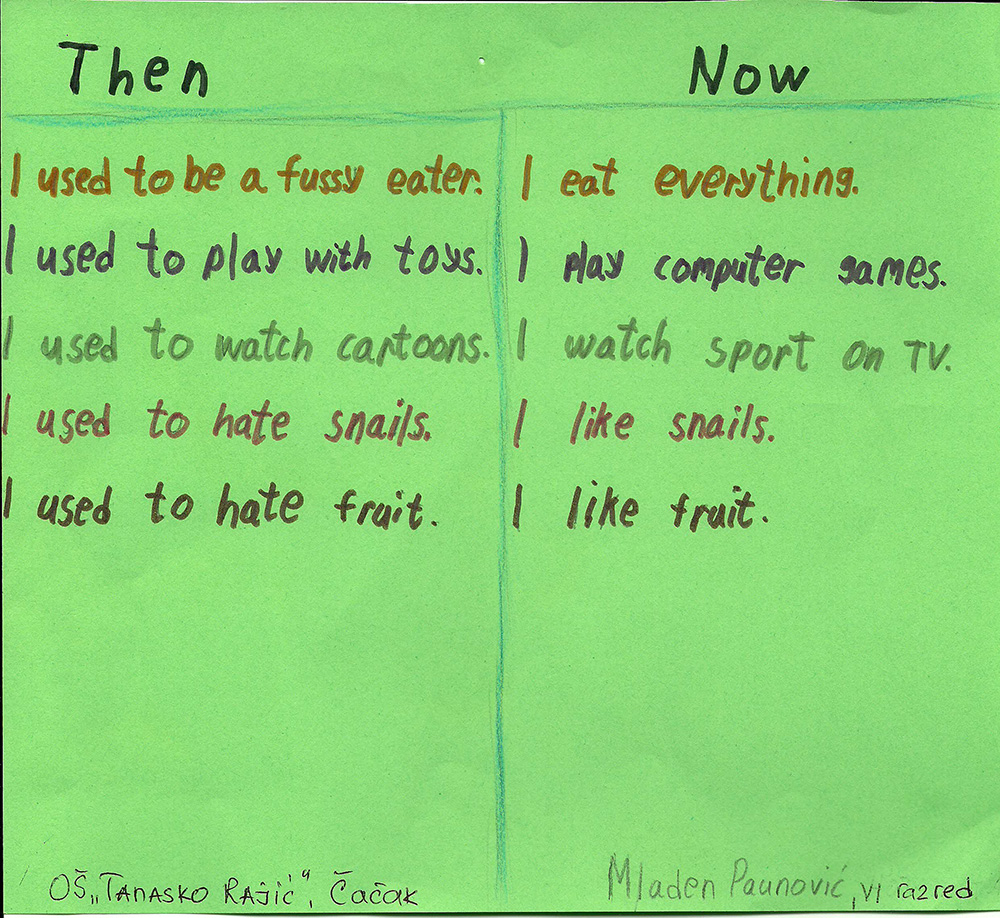 Then
Now
I used to be a fussy eater.
I eat everything.
I used to play with toys.
I play computer games.
I used to watch cartoons.
I watch sport on TV.
I used to hate snails.
I like snails.
I used to hate fruit.
I like fruit.
OŠ „Tanasko Rajić“, Čačak
Mladen Paunović, VI razred